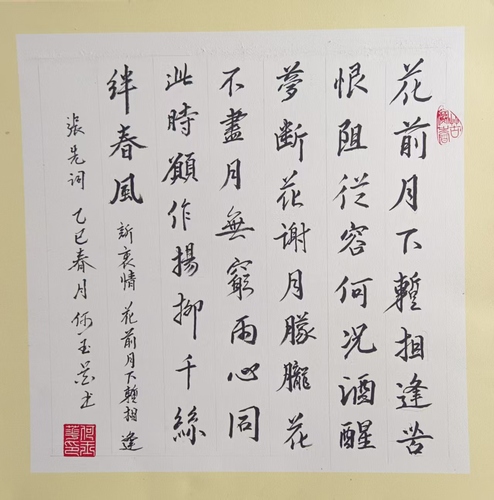 花前月下暫相逢苦
恨阻從容何況酒醒
夢斷花謝月朦朧花
不盡月無窮兩心同
此時願作揚柳千絲
絆春風 訴衷情 花前月下暫相逢
張先詞 乙巳春月 何玉 书